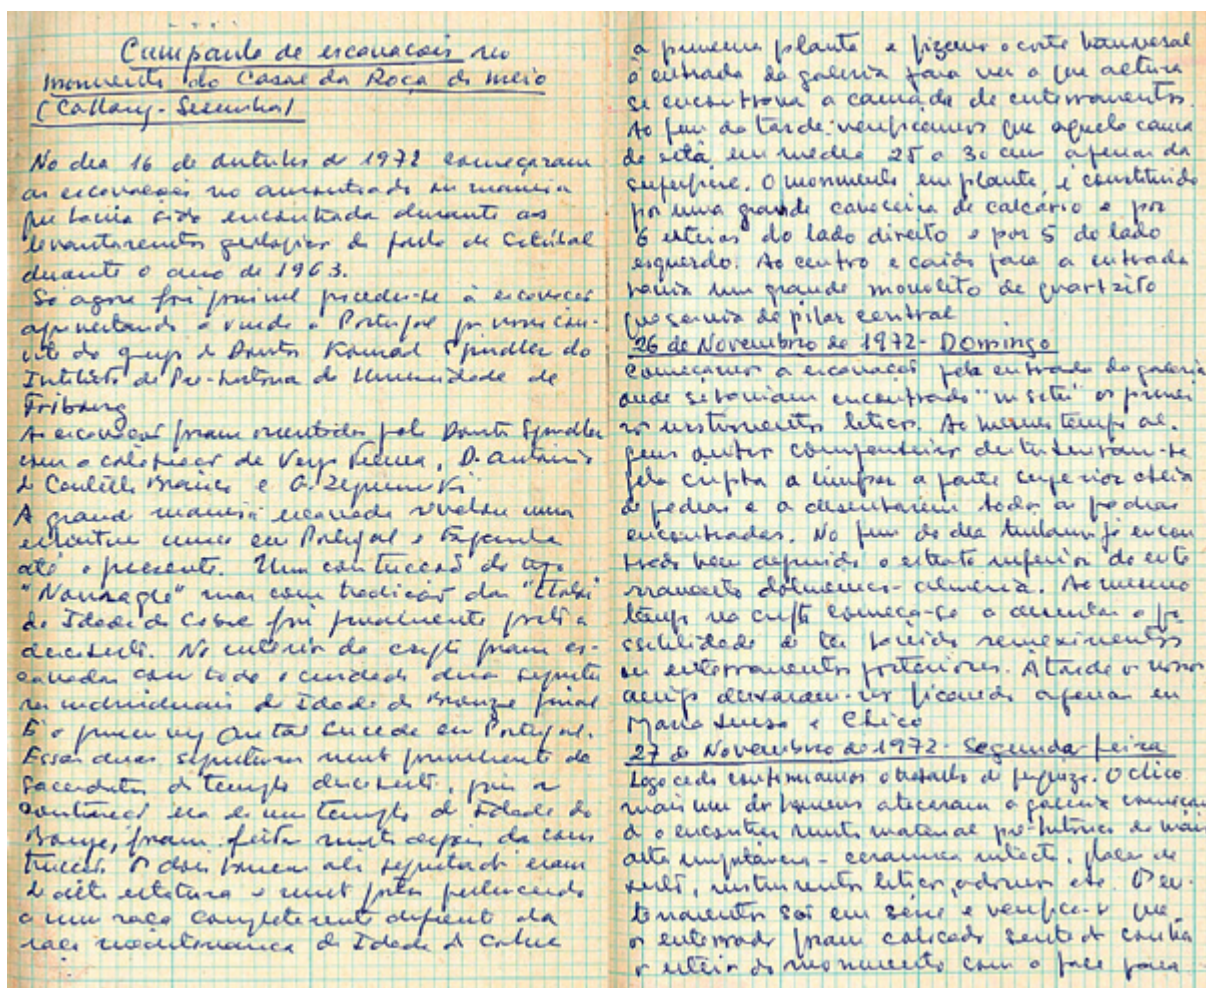 Campanha de escavações no
monumento do Casal da Roça do meio
(Calhariz - Sesimbra)
No dia 16 de outubro de 1972 começaram
as escavações no amontoado
que havia sido encontrada durante os
levantamentos geológicos da folha de Setúbal
durante o ano de 1963.
Só agora foi possível proceder-se à escavação
aproveitando a vinda a Portugal
do Doutor Konrad Spindler do
Instituto de Pre-historia da Universidade de
Fribourg
As escavações foram orientadas pelo Doutor Spindler
com a colaboração de Veiga Ferreira, D. António
de Castello Branco e G. Zbyszewski
A grande escavada revelou uma
estrutura unica em Portugal e Espanha
até o presente. Uma construção do tipo
mas com tradição das
da Idade do Cobre foi finalmente
No interior da cripta foram es-
cavadas com todo o cuidado duas sepultu
ras individuais da Idade do Bronze final
É a primeira vez que tal sucede em Portugal.
Essas duas sepulturas
sacerdotes do templo
construção era de um templo da Idade do
Bronze, foram feitas muito depois da cons
trucção. Os dois homens ali sepultados eram
de alta estatura e pertencendo
a uma raça completamente diferente da
raça mediterranica da Idade do Cobre
a primeira planta e fizemos o corte transversal
à entrada da galeria para ver a que altura
se encontrava a camada de enterramentos.
Ao fim da tarde verificamos que aquela cama
da está em media 25 a 30 cm apenas da
superficie. O monumento, em planta, é constituido
por uma grande cabeceira de calcário e por
6 esteios do lado direito e por 5 do lado
esquerdo. Ao centro e caido para a entrada
havia um grande monolito de quartzito
que servia de pilar central
26 de Novembro de 1972 - Domingo
Começamos a escavação pela entrada da galeria
onde se haviam encontrado "in situ" os primei
ros instrumentos liticos. Ao mesmo tempo al-
guns outros companheiros
pela cripta a limpar a parte superior cheia
de pedras e a desenharem todas as pedras
encontradas. No fim do dia tinhamos já encon
trado bem definido o estrato inferior do ente
rramento Ao mesmo
tempo na cripta começa-se a a po
ssibilidade de ter havido remeximentos
ou enterramentos posteriores. À tarde os nossos
amigos deixaram-nos ficando apenas eu
Maria Luisa e Chico
27 de Novembro de 1972 - Segunda feira
Logo cedo continuamos o trabalho de pesquiza. O Chico
mais um dos homens atacaram a galeria começan
do a encontrar muito material pré-histórico da mais
alta importancia - ceramica intacta, placas de
instrumentos liticos, adornos etc. Os en-
terramentos são em série e verifica-se que
os enterrados foram colocados contra
o esteio do monumento com a face para